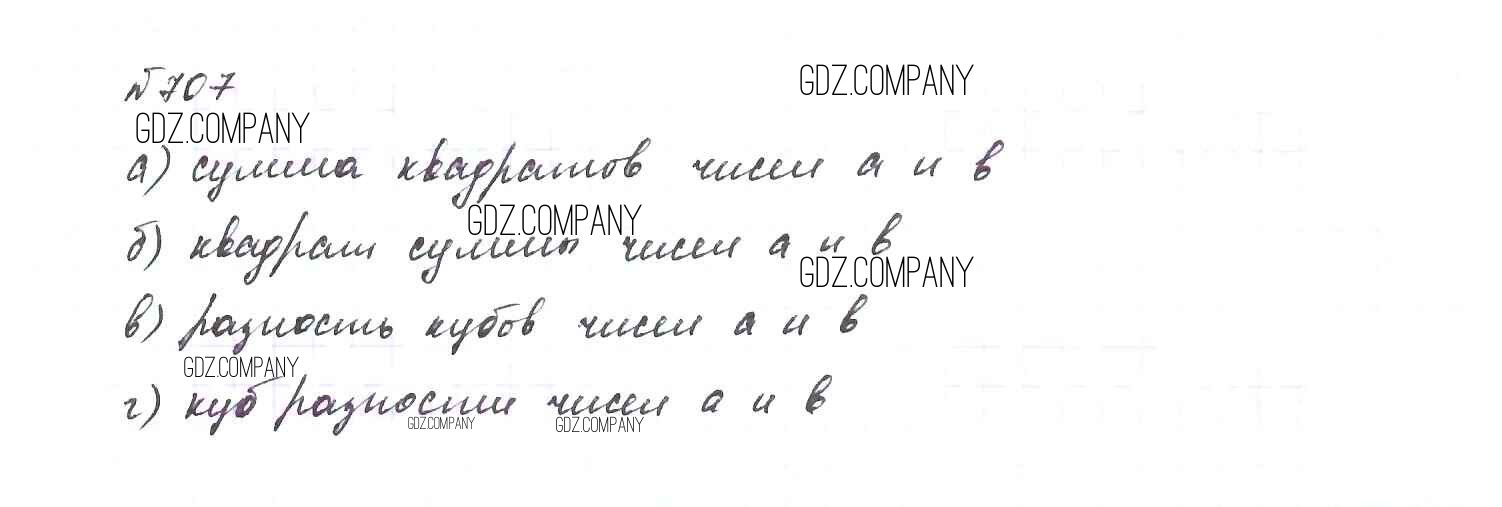 №707
GDZ.COMPANY
GDZ.COMPANY
а) сумма квадратов чисел а и в
GDZ.COMPANY
б) квадрат суммы чисел а и в
GDZ.COMPANY
в) разность кубов чисел а и в
GDZ.COMPANY
г) куб разности чисел а и в
GDZ.COMPANY
GDZ.COMPANY